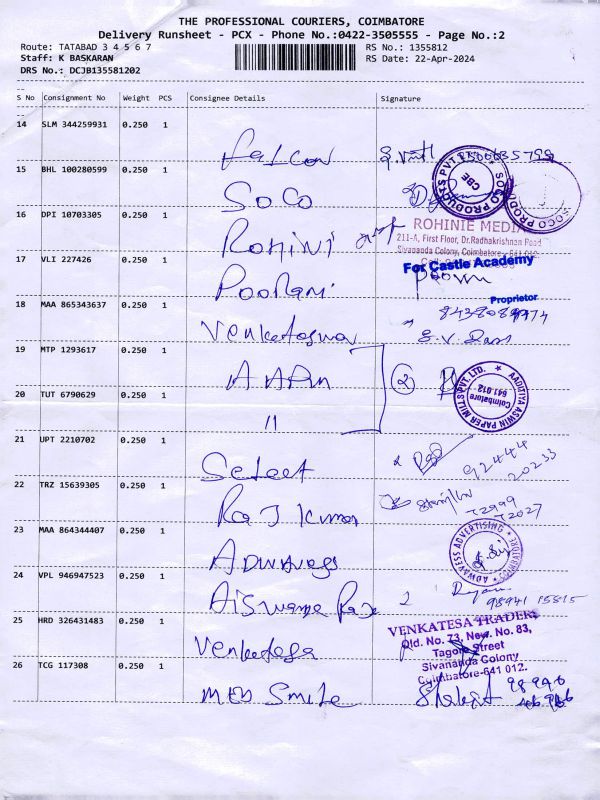 THE PROFESSIONAL COURIERS, COIMBATORE
Delivery Runsheet - PCX - Phone No.:0422-3505555 - Page No.:2
Route: TATABAD 3 4 5 6 7
RS No.: 1355812
Staff: K BASKARAN
RS Date: 22-Apr-2024
DRS No.: DCJB135581202
S No Consignment No Weight PCS Consignee Details Signature
14 SLM 344259931 0.250 1
Falcon
15 BHL 100280599 0.250 1
SOCO
SOCO PRODUCTS PVT. LTD. CBE
SOCO PRODU
16 DPI 10703305 0.250 1
Rohini
ROHINIE MEDI
211-A, First Floor, Dr.Radhakrishnan Road
Sivananda Colony, Coimbatore - 641 012
17 VLI 227426 0.250 1
Poorani
For Castle Academy
Poorni
Proprietor
18 MAA 865343637 0.250 1
Venkateswar
19 MTP 1293617 0.250 1
20 TUT 6790629 0.250 1
"
2
AADITYA ASWIN PAPER MILLS PVT. LTD.
Coimbatore
641 012
21 UPT 2210702 0.250 1
Select
92444
20233
22 TRZ 15639305 0.250 1
Raj Kumar
72999
72027
23 MAA 864344407 0.250 1
Adwaves
ADWAVESS ADVERTISING
24 VPL 946947523 0.250 1
Aiswarya Raje
98941 15815
25 HRD 326431483 0.250 1
Venkatesa
VENKATESA TRADER
Old. No. 73, New. No. 83,
Tagore Street
Sivananda Colony
Coimbatore-641 012.
26 TCG 117308 0.250 1
MED Smile